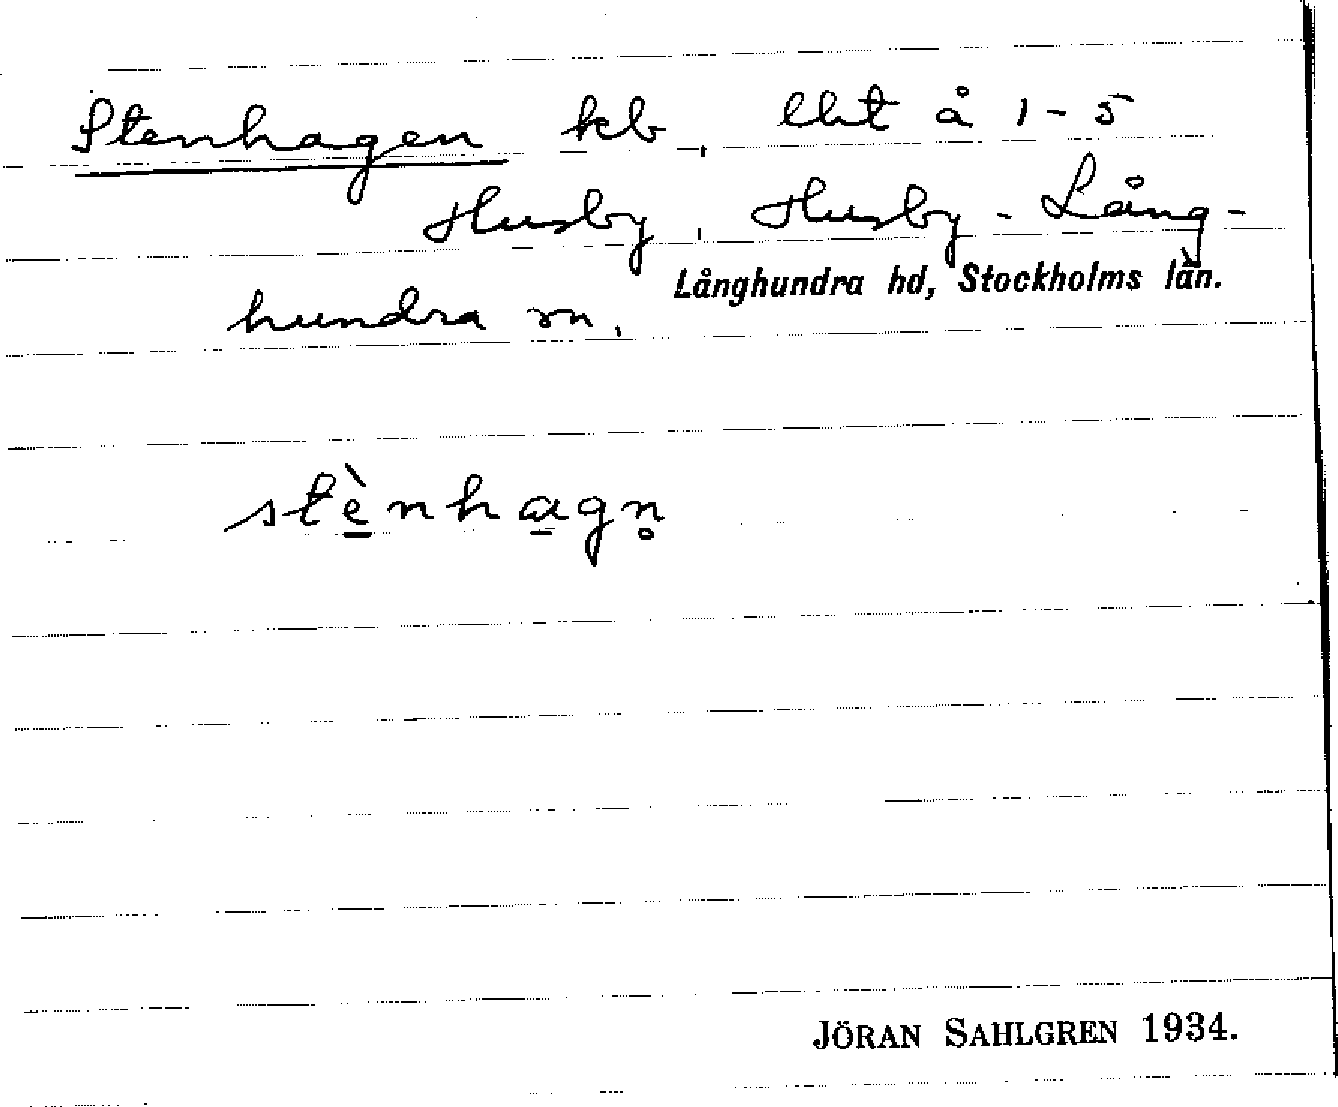 Stenhagen kb, lht å 1-5
Husby, Husby-Lång-
Långhundra hd, Stockholms län.
hundra sn,
stè̱nha̱gn̥
JÖRAN SAHLGREN 1934.